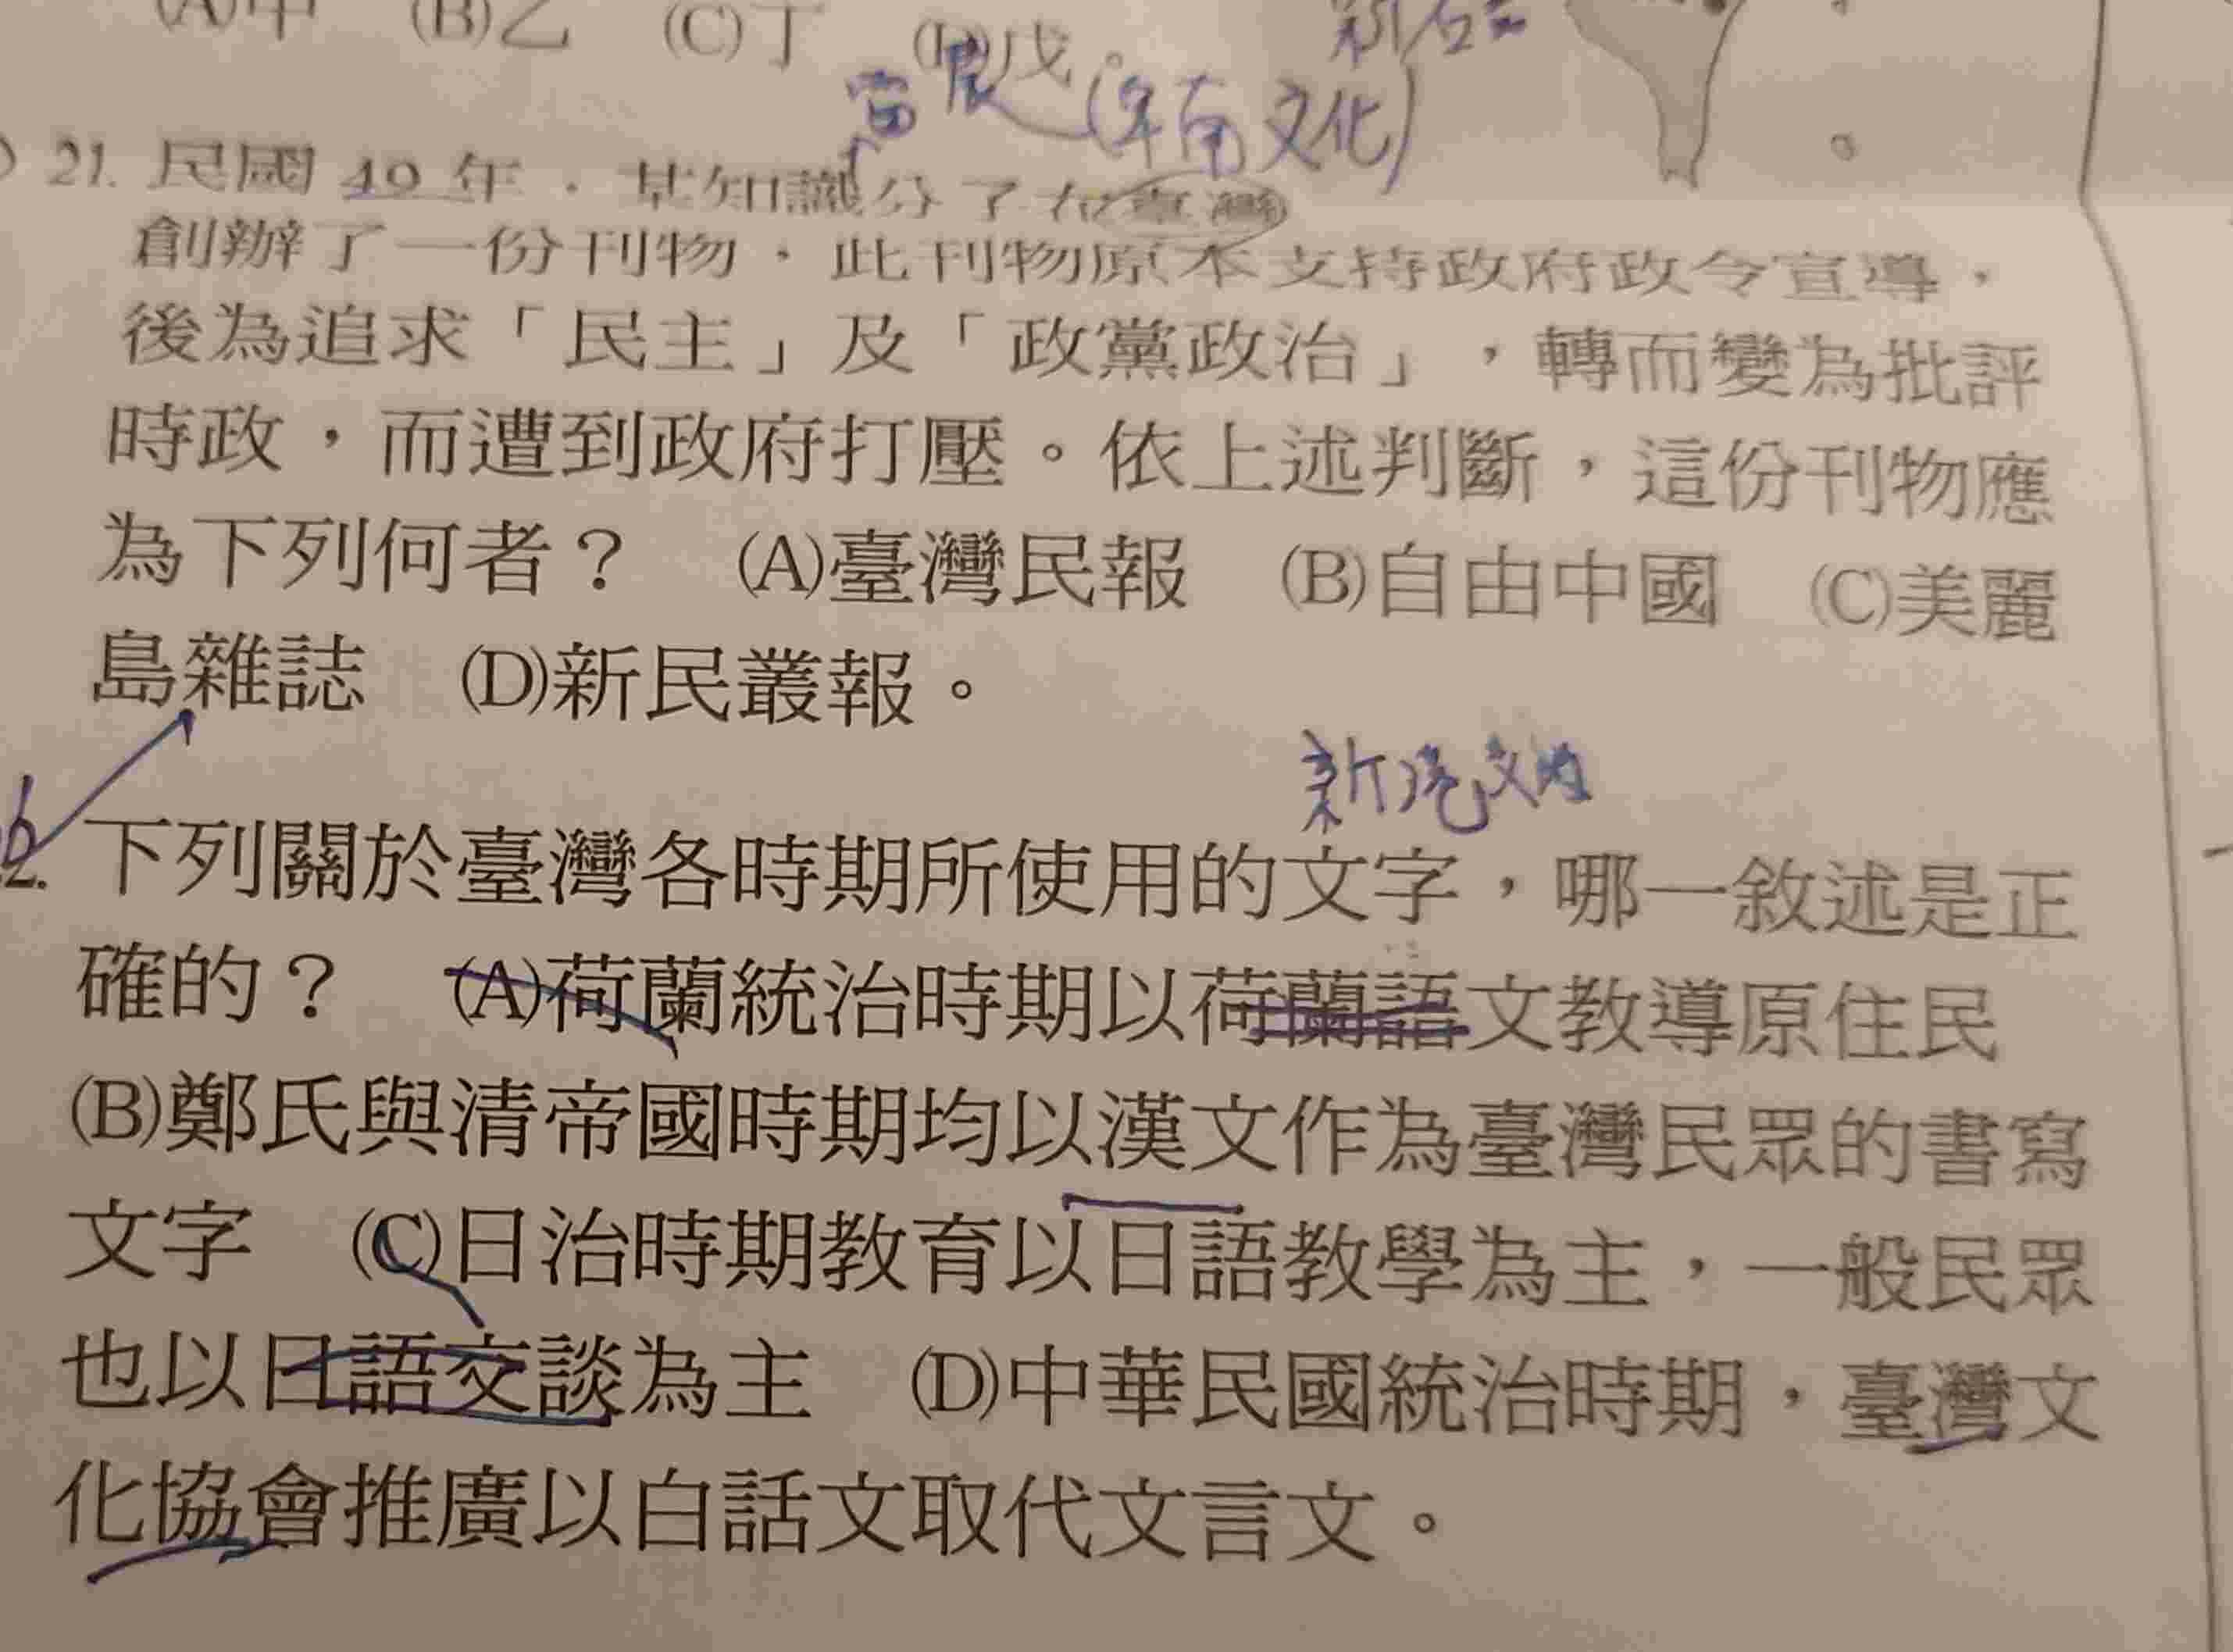 (A)甲 (B)乙 (C)丁 (D)戊。
(卑南文化)
21. 民國 49 年，某知識分子在臺灣
創辦了一份刊物，此刊物原本支持政府政令宣導，
後為追求「民主」及「政黨政治」，轉而變為批評
時政，而遭到政府打壓。依上述判斷，這份刊物應
為下列何者？ (A)臺灣民報 (B)自由中國 (C)美麗
島雜誌 (D)新民叢報。
新港文書
2. 下列關於臺灣各時期所使用的文字，哪一敘述是正
確的？ (A)荷蘭統治時期以荷蘭語文教導原住民
(B)鄭氏與清帝國時期均以漢文作為臺灣民眾的書寫
文字 (C)日治時期教育以日語教學為主，一般民眾
也以日語交談為主 (D)中華民國統治時期，臺灣文
化協會推廣以白話文取代文言文。